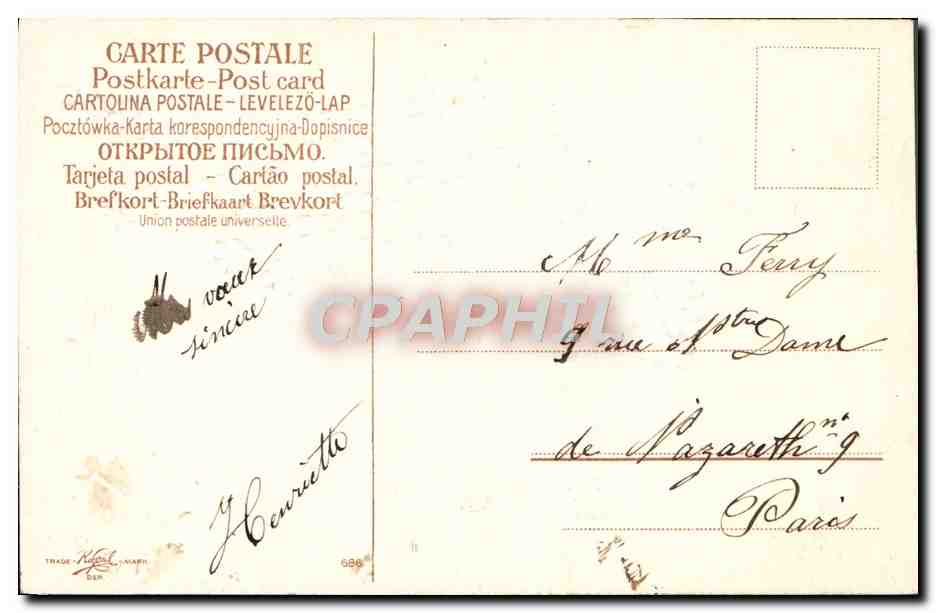 CARTE POSTALE
Postkarte-Post card
CARTOLINA POSTALE-LEVELEZÖ-LAP
Pocztówka-Karta korespondencyjna-Dopisnice
ОТКРЫТОЕ ПИСЬМО.
Tarjeta postal - Cartão postal.
Brefkort-Briefkaart Brevkort
Union postale universelle.
vœux
sincère
Henriette
TRADE MARK
DEP.
686
CPAPHIL
Mme Ferry
9 rue Ntre Dame
de Nazareth no 9
Paris